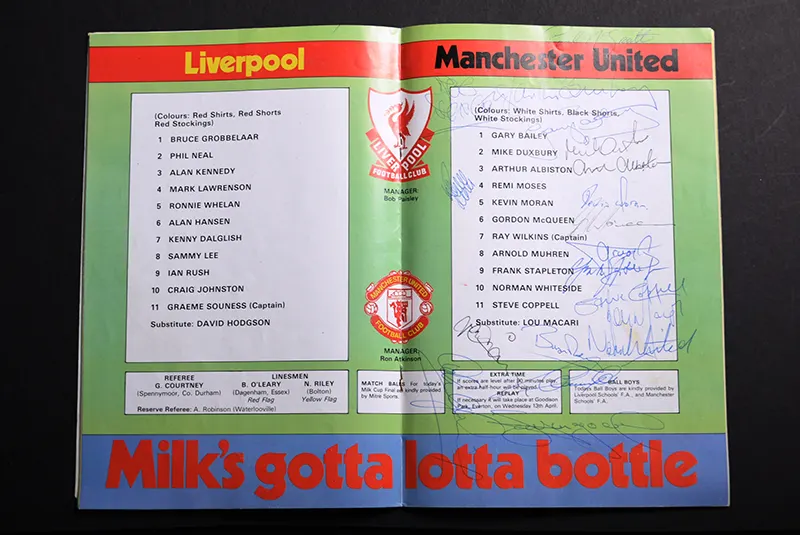 Liverpool
(Colours: Red Shirts, Red Shorts
Red Stockings)
1 BRUCE GROBBELAAR
2 PHIL NEAL
3 ALAN KENNEDY
4 MARK LAWRENSON
5 RONNIE WHELAN
6 ALAN HANSEN
7 KENNY DALGLISH
8 SAMMY LEE
9 IAN RUSH
10 CRAIG JOHNSTON
11 GRAEME SOUNESS (Captain)
Substitute: DAVID HODGSON
REFEREE
G. COURTNEY
(Spennymoor, Co. Durham)
LINESMEN
B. O'LEARY
(Dagenham, Essex)
Red Flag
N. RILEY
(Bolton)
Yellow Flag
Reserve Referee: A. Robinson (Waterlooville)
LIVERPOOL
FOOTBALL CLUB
MANAGER:
Bob Paisley
MANCHESTER UNITED
FOOTBALL CLUB
MANAGER:
Ron Atkinson
MATCH BALLS For today's
Milk Cup Final are kindly provided
by Mitre Sports.
Manchester United
(Colours: White Shirts, Black Shorts,
White Stockings)
1 GARY BAILEY
2 MIKE DUXBURY
3 ARTHUR ALBISTON
4 REMI MOSES
5 KEVIN MORAN
6 GORDON McQUEEN
7 RAY WILKINS (Captain)
8 ARNOLD MUHREN
9 FRANK STAPLETON
10 NORMAN WHITESIDE
11 STEVE COPPELL
Substitute: LOU MACARI
Steve Coppell
Norman Whiteside
EXTRA TIME
If scores are level after 90 minutes play
an extra half-hour will be played.
REPLAY
If necessary it will take place at Goodison
Park, Everton, on Wednesday 13th April.
BALL BOYS
Today's Ball Boys are kindly provided by
Liverpool Schools' F.A., and Manchester
Schools' F.A.
Milk's gotta lotta bottle